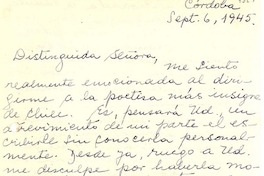 Córdoba
Sept. 6, 1945.
Distinguida Señora,
me siento
realmente emocionada al diri-
girme a la poetisa más insigne
de Chile. Es, pensará Ud, un
atrevimiento de mi parte el es-
cribirle sin conocerla personal-
mente. Desde ya, ruego a Ud.
me disculpe por haberla mo-